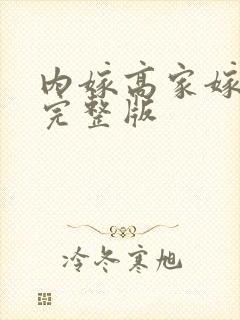 内嫁高家嫁
完整版
冷冬寒旭